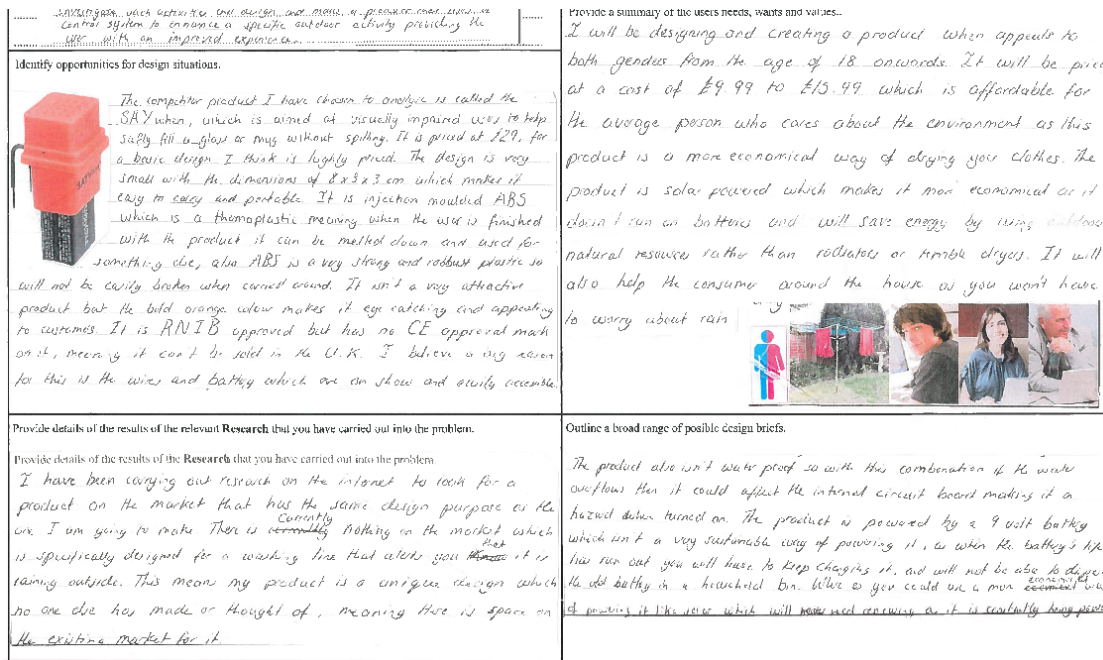 investigate such activities and design and make a product that uses a
control system to enhance a specific outdoor activity providing the
user with an improved experience.
Identify opportunities for design situations.
The competitor product I have chosen to analyic is called the
SAY when, which is aimed at visually impaired to help
safly fill a glass or mug without spilling. It is priced at £29, for
a basic design I think is highly priced. The design is very
small with the dimensions of 8x3x3 cm which makes it
easy to carry and portable. It is injection moulded ABS
which is a thermoplastic meaning when the user is finished
with the product it can be melted down and used for
something else, also ABS is a very strong and robbust plastic so
will not be easily broken when carried around. It isn't a very attractive
product but the bold orange colour makes it eye catching and appealing
to customers. It is RNIB approved but has no CE approval mark
on it, meaning it can't be sold in the U.K. I believe a big reason
for this is the wires and battery which are on show and easily accessible.
Provide details of the results of the relevant Research that you have carried out into the problem.
Provide details of the results of the Research that you have carried out into the problem.
I have been carrying out research on the internet to look for a
product on the market that has the same design purpose as the
one I am going to make. There is currently nothing on the market which
is specifically designed for a washing line that alerts you that it is
raining outside. This means my product is a unique design which
no one else has made or thought of, meaning there is space on
the existing market for it.
Provide a summary of the users needs, wants and values.
I will be designing and creating a product when appeals to
both genders from the age of 18 onwards. It will be price
at a cost of £9.99 to £15.99 which is affordable for
the average person who cares about the environment as this
product is a more economical way of drying your clothes. The
product is solar powered which makes it more economical as it
doesn't run on batteries and will save energy by using outdoor
natural resources rather than radiators or tumble dryers. It will
also help the consumer around the house as you won't have
to worry about rain
Outline a broad range of posible design briefs.
The product also isn't water proof so with this combenation if the water
overflows then it could affect the internal circuit board making it a
hazard when turned on. The product is powered by a 9 volt battery
which isn't a very sustainable way of powering it, as when the battery's life
has run out you will have to keep changing it, and will not be able to dispose
the old battery in a household bin. you could use a more economical
of powering it like solar which will need renewing as it is constantly being